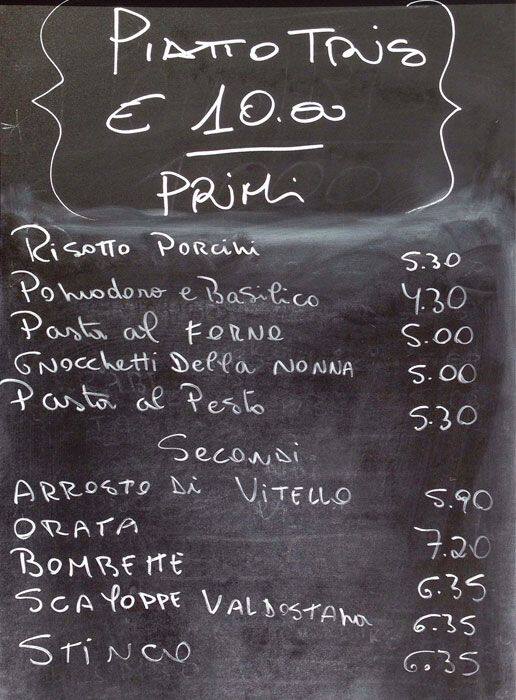 PIATTO TRIS
€ 10.00
PRIMI
RISOTTO PORCINI 5.30
Pomodoro e Basilico 4.30
Pasta al FORNO 5.00
GNOCCHETTI Della NONNA 5.00
Pasta al Pesto 5.30
SECONDI
ARROSTO DI VITELLO 5.90
ORATA 7.20
BOMBETTE 6.35
SCALOPPE VALDOSTANA 6.35
STINCO 6.35